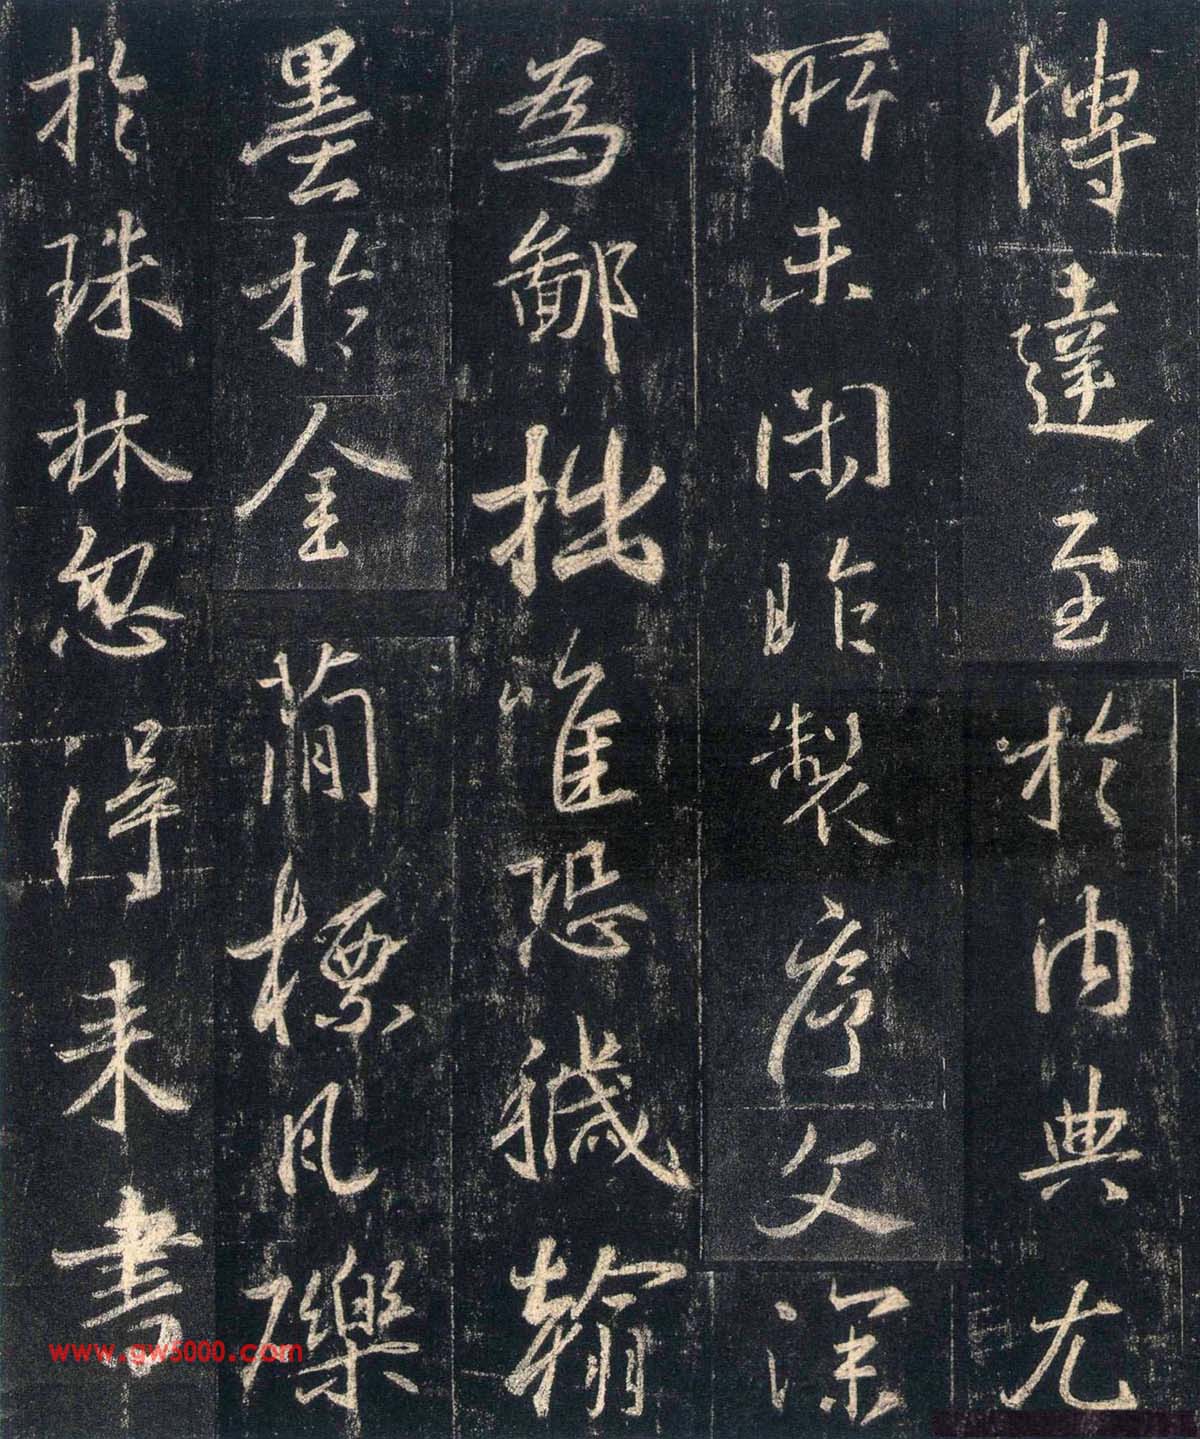 博達至於內典尤
所未閑昨製序文深
為鄙拙唯恐穢翰
墨於金簡標瓦礫
於珠林忽得来書
www.gw5000.com